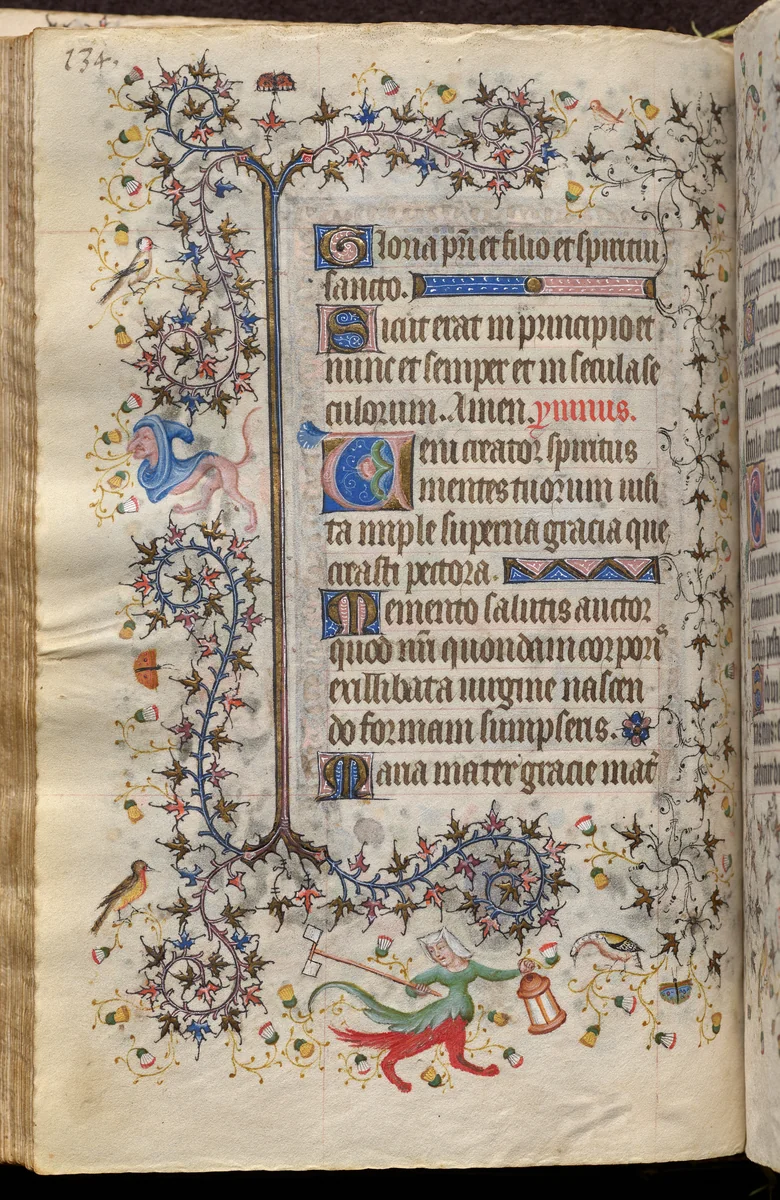 134.
Gloria pr̄i et filio et spiritui
sancto.
Sicut erat in principio et
nunc et semper et in secula se
culorum. Amen. ymnus.
Veni creator spiritus
mentes tuorum uisi
ta imple superna gracia que
creasti pectora.
Memento salutis auctor
quod nr̄i quondam corporis
ex illibata uirgine nascen
do formam sumpseris.
Maria mater gracie mat͛